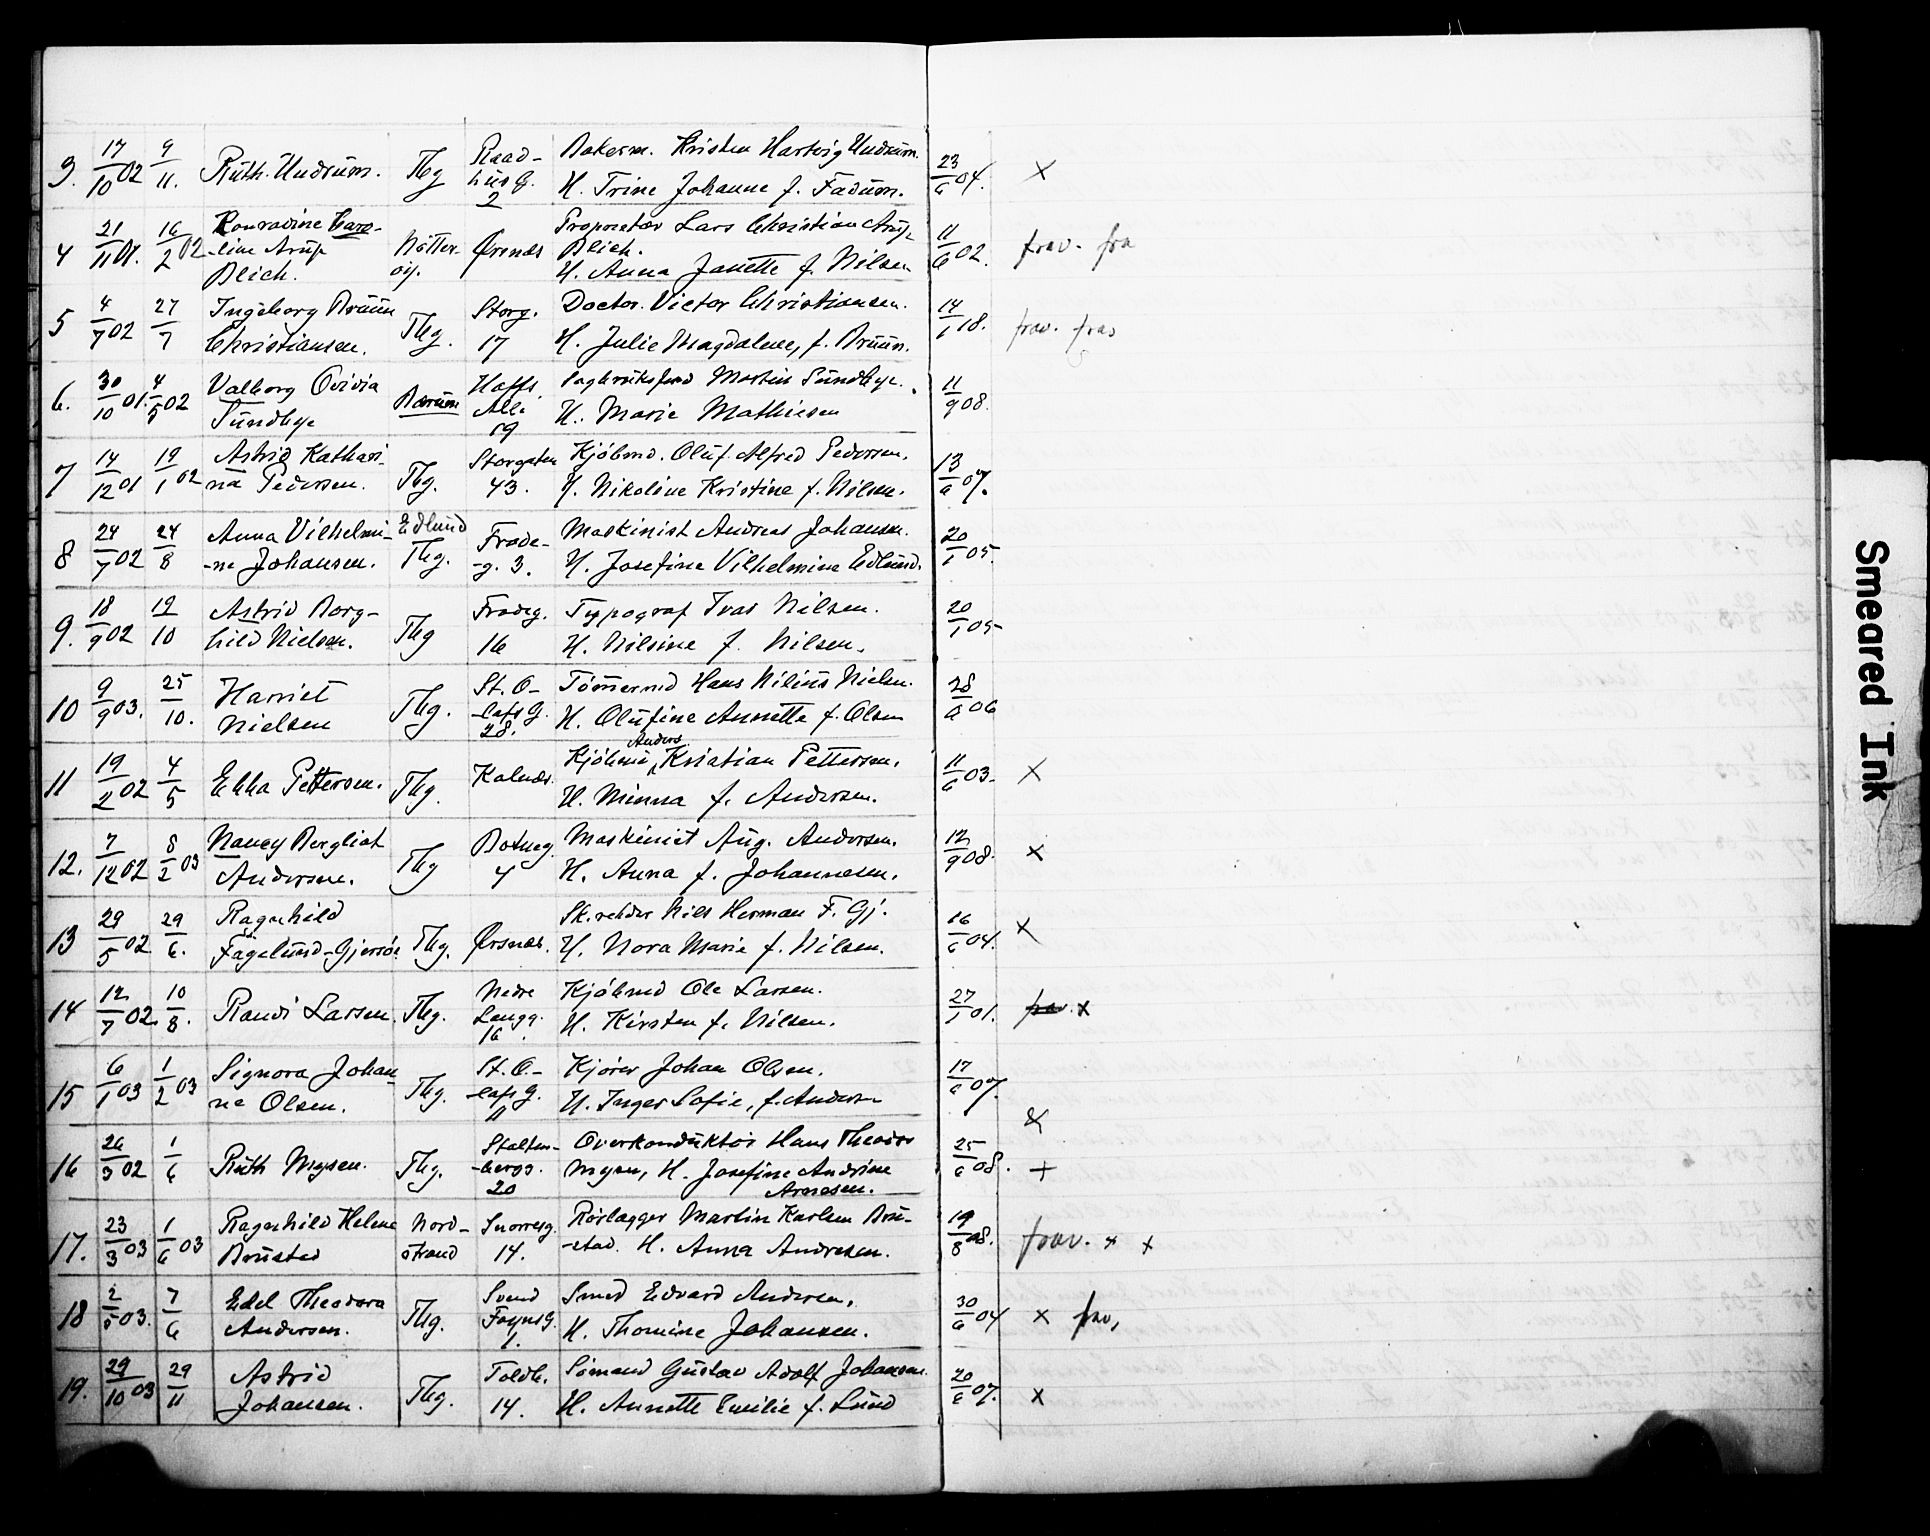 3. 17/10 02 9/11. Ruth Undrum. Tbg Raad-
hus G. 2 Bakerm. Kristen Hartvig Undrum.
H. Trine Johanne f. Fadum. 23/6 04. x
4 21/11 01. 16/2 02 Konradine Caro-
-line Arup
Blich. Nötter-
öy. Ørsnes Proprietær Lars Christian Arup
Blich.
H. Anna Janette f. Nilsen 11/6 02. frav. fra
5 4/7 02 27/7 Ingeborg Bruun
Christiansen. Tbg. Storg.
17 Doctor. Victor Christiansen.
H. Julie Magdalene, f. Bruun. 14/1 18. frav. fra
6. 30/10 01. 4/5 02 Valborg Ovidia
Sundbye Bærum Alle
19 Martin Sundbye.
H. Marie Mathiesen 11/9 08.
7 14/12 01 19/1 02 Astrid Kathari-
na Pedersen. Tbg. Storgaten
43. Kjöbmd. Oluf Alfred Pedersen.
H. Nikoline Kristine f. Nilsen. 13/6 07.
8 24/7 02 24/8 Anna Vilhelmi-
-ne Johansen. Edlund
Tbg. Frode-
-g. 3. Maskinist Andreas Johansen.
H. Josefine Vilhelmine Edlund. 20/1 05.
9. 18/9 02 19/10 Astrid Borg-
hild Nielsen. Tbg Frodeg.
16 Typograf Ivar Nilsen.
H. Nilsine f. Nilsen. 20/1 05
10 9/9 03. 25/10. Harriet
Nielsen Tbg. St. O-
-lafs G.
28. Tömmermd Hans Nilius Nielsen.
H. Olufine Annette f. Olsen 28/6 06
11 19/2 02 4/5 Ebba Pettersen. Tbg. Kalnes. Anders
Kjöbmd Kristian Pettersen.
H. Minna f. Andersen. 11/6 03. x
12. 7/12 02 8/2 03 Nancy Bergliot
Andersen. Tbg Botneg.
4 Maskinist Aug. Andersen.
H. Anna f. Johannesen. 12/9 08. x
13 29/5 02 29/6. Ragnhild
Fagelund-Gjersöe Tbg. Ørsnes. Sk.reder Nils Herman F. Gj.
H. Nora Marie f. Nilsen. 16/6 04. x
14 12/7 02. 10/8. Randi Larsen. Tbg. Nedre
Langg.
16. Kjöbmd Ole Larsen.
H. Kirsten f. Nilsen. 27/1 01. frav. x
15 6/1 03 1/2 03 Signora Johan-
ne Olsen. Tbg. St. O-
-lafs G.
11 Kjörer Johan Olsen.
H. Inger Sofie, f. Andersen 17/6 07. x
16 26/3 02 1/6 Ruth Mysen. Tbg. Stolten-
-bergs.
20 Overkonduktör Hans Theodor
Mysen, H. Josefine Andrine
Arnesen. 25/6 08. +
17. 23/3 03 1/6 03 Ragnhild Helene
Brustad Nord-
strand Snorresg.
14. Rörlægger Martin Karlsen Bru-
-stad. H. Anna Andresen. 19/8 08. frav. x x
18 2/5 03. 7/6 Edel Theodora
Andersen. Tbg. Svend
Foyns G.
1. Smed Edvard Andersen.
H. Thomine Johansen. 30/6 04 x frav,
19. 29/10 03 29/11 Astrid
Johansen. Tbg. Toldb.
14. Sömand Gustav Adolf Johansen
H. Annette Emilie f. Lund 20/6 07. x
Smeared Ink